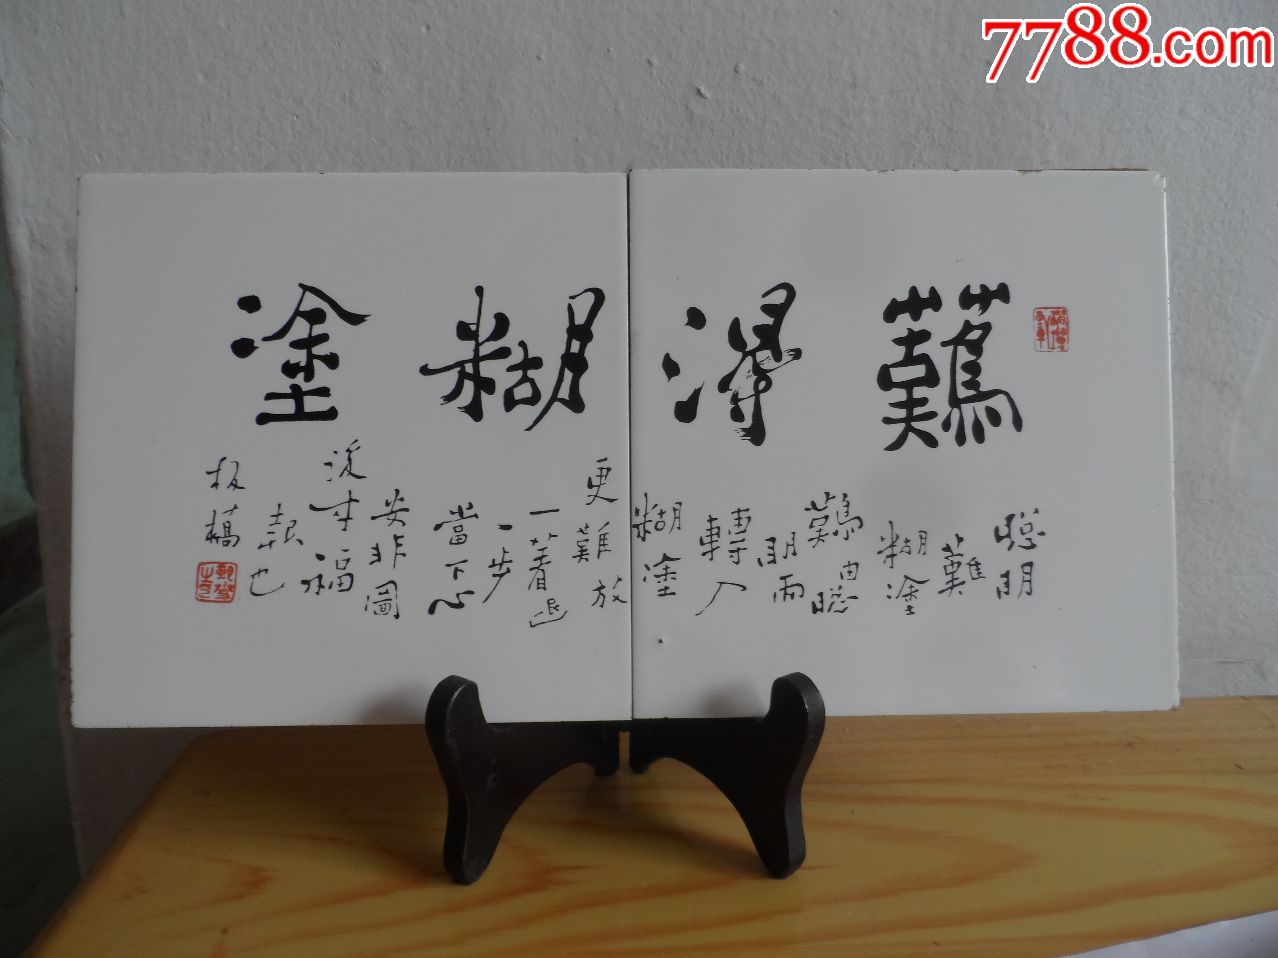 7788.com
難得糊塗
聰明
難
糊塗
難由聰
明而
轉入
糊塗
更難放
一著退
一步
當下心
安非圖
後來福
報也
板橋